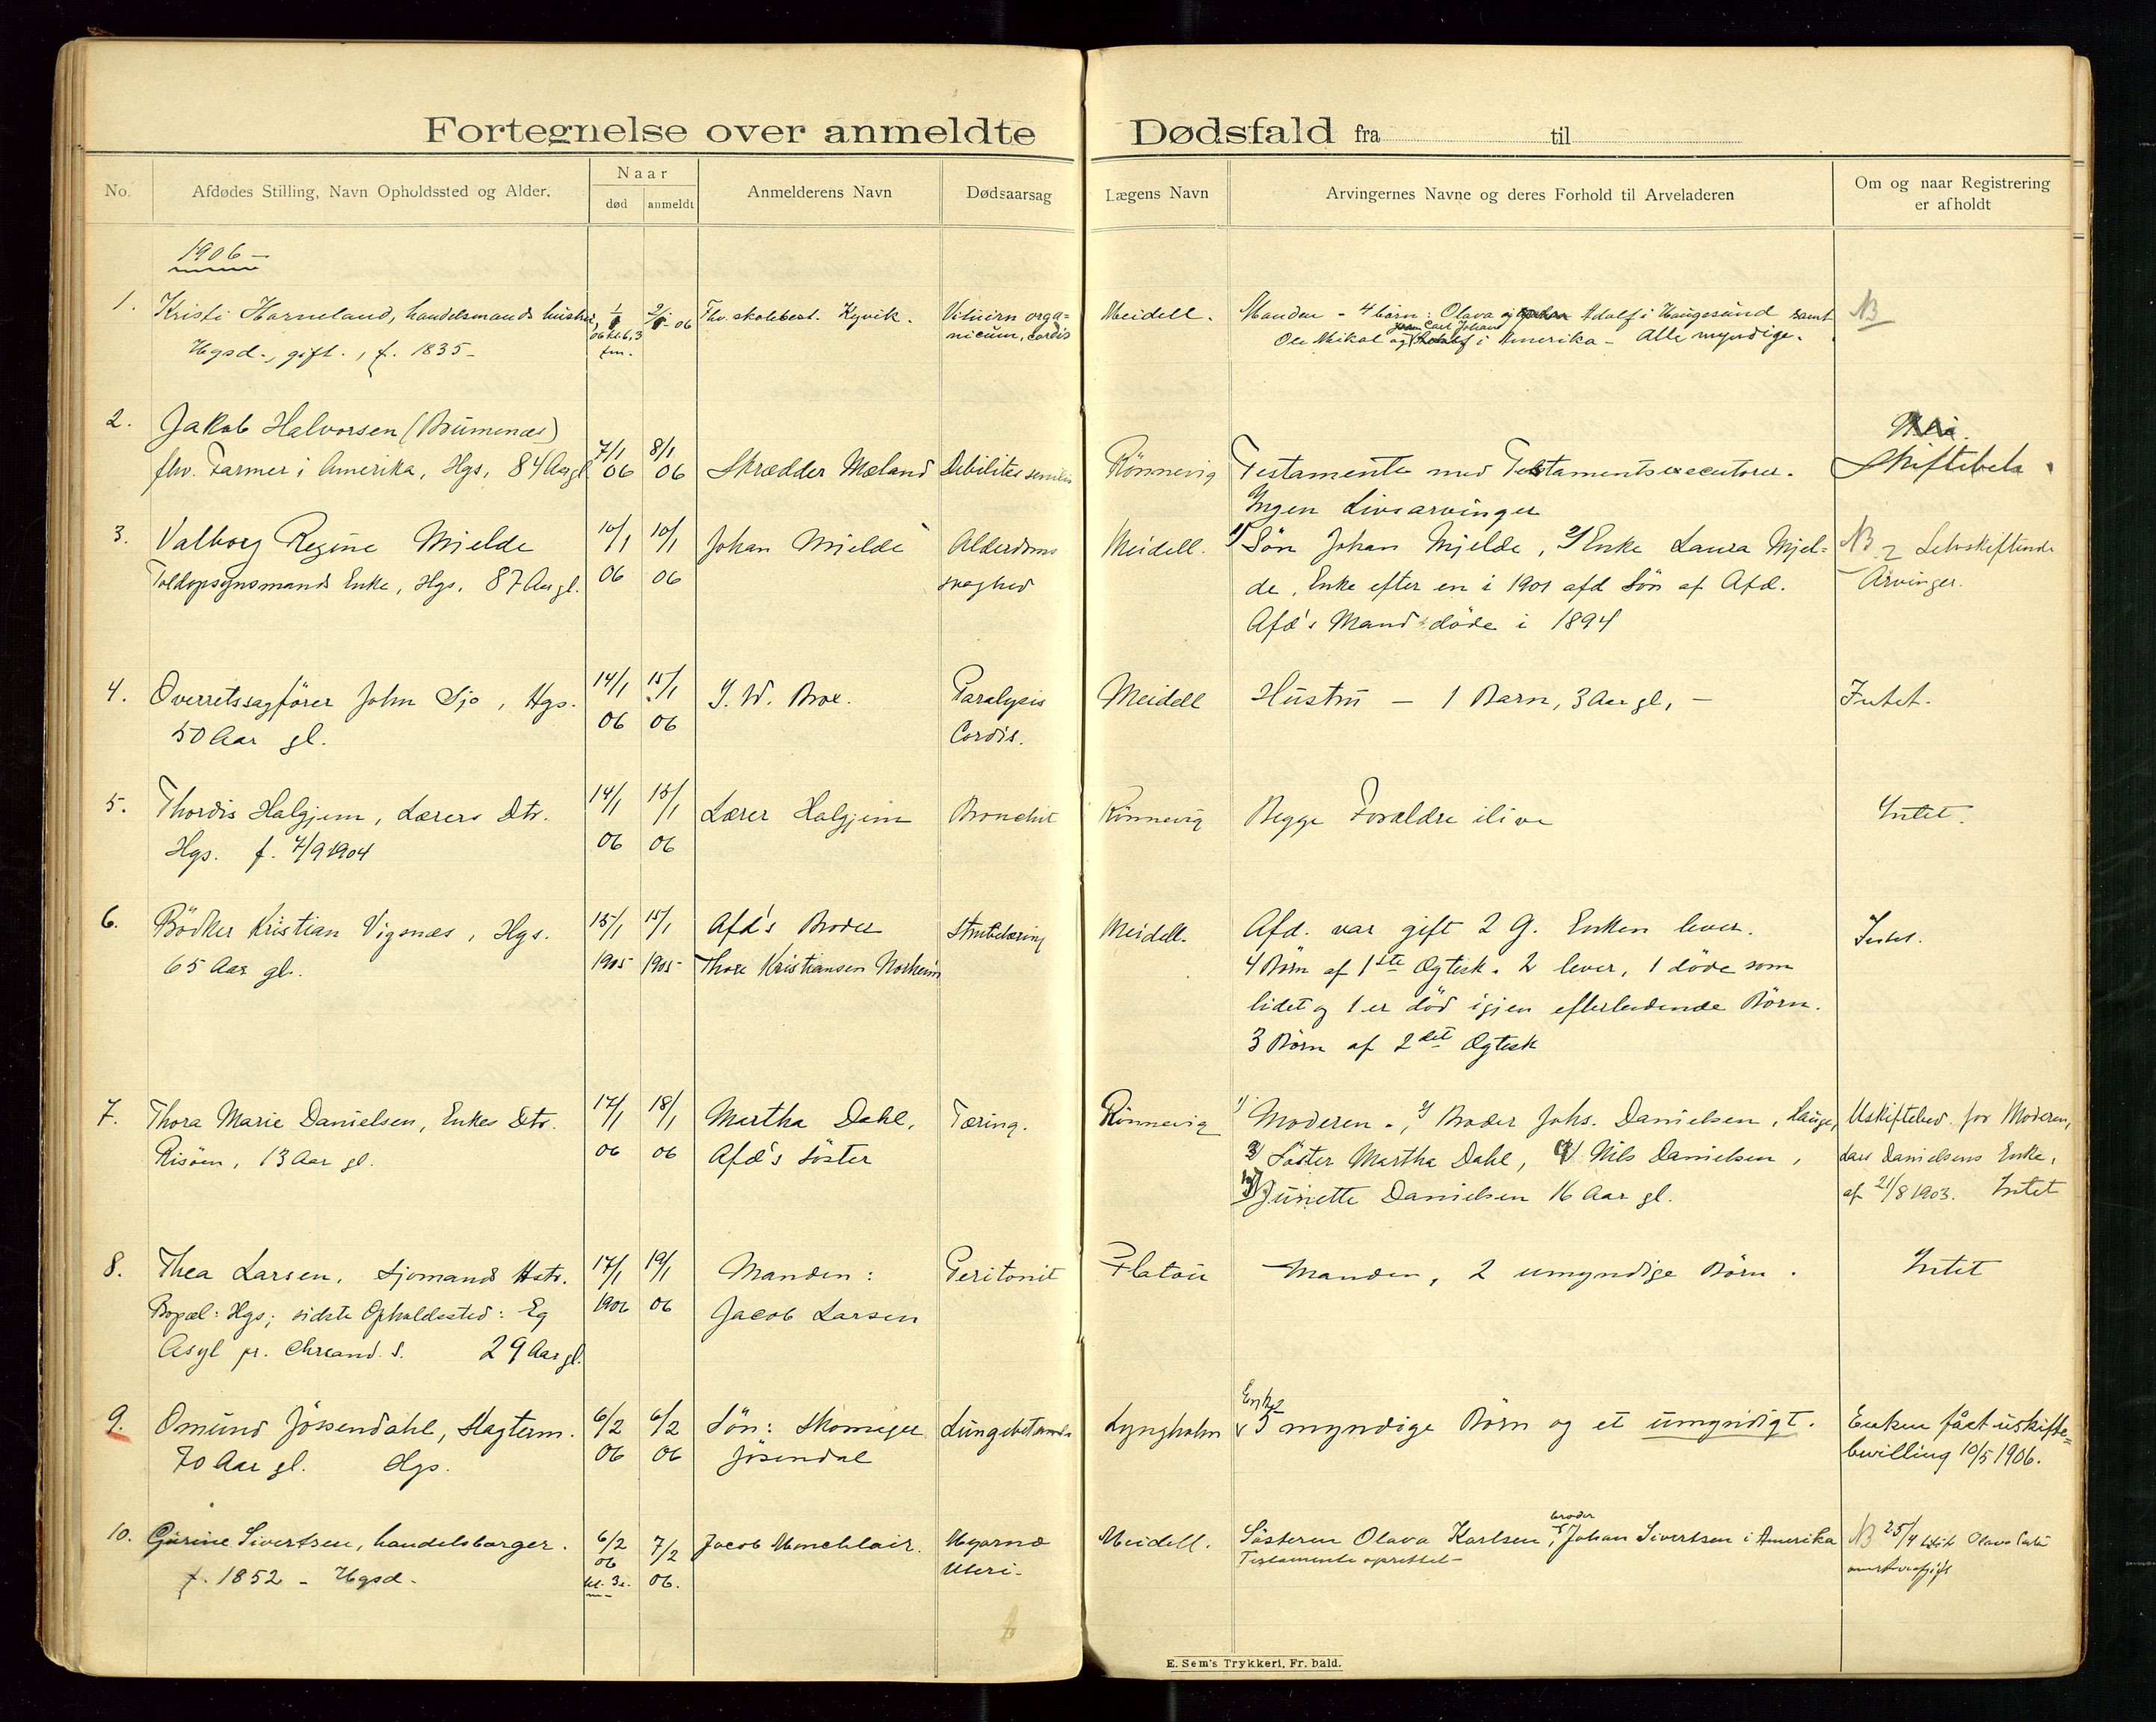 Fortegnelse over anmeldte Dødsfald fra til
No. Afdødes Stilling, Navn Opholdssted og Alder. Naar død anmeldt Anmelderens Navn Dødsaarsag Lægens Navn Arvingernes Navne og deres Forhold til Arveladeren Om og naar Registrering er afholdt
1906 –
1. Kristi Harneland, handelsmands hustru, Fhv. skolebest. Kyvik. Vitium orga= Meidell. Manden – 4 børn: Olava og Adolf i Haugesund samt NB
Hgsd., gift., f. 1835 – fm. nicum, cordis Ole Mikal og Carl Johan i Amerika – Alle myndige.
2. Jakob Halvorsen (Brumenæs)
fhv. Farmer i Amerika, Hgs, 84 Aar gl. 7/1 06 8/1 06 Skrædder Mæland Debilitas senilis Rønnevig Testamente med Testamentsexecutorer. Skiftebeh.
Ingen Livsarvinger
3. Valborg Regine Mjelde 10/1 10/1 Johan Mjelde Alderdoms Meidell. 1) Søn Johan Mjelde, 2) Enke Laura Mjel= NB 2 Selvskiftende
Toldopsynsmands Enke, Hgs, 87 Aar gl. 06 06 svaghed de, Enke efter en i 1901 afd Søn af Afd. Arvinger.
Afd's Mand døde i 1894
4. Overretssagfører John Sjo, Hgs. 14/1 15/1 J. W. Broe. Paralysis Meidell Hustru – 1 Barn, 3 Aar gl, – Intet.
50 Aar gl. 06 06 Cordis.
5. Thordis Halgjem, Lærers Dtr. 14/1 15/1 Lærer Halgjem Bronchit Rønnevig Begge Forældre ilive Intet.
Hgs. f. 7/9 1904 06 06
6. Bödker Kristian Vigsnæs, Hgs. 15/1 15/1 Afd's Broder Strubetæring Meidell. Afd. var gift 2 G. Enken lever. Intet.
65 Aar gl. 1905 1905 Thore Kristiansen Norheim 4 Børn af 1ste Ægtesk. 2 lever, 1 döde som
lidet og 1 er död igjen efterladende Börn.
3 Börn af 2det Ægtesk
7. Thora Marie Danielsen, Enkes Dtr. 17/1 18/1 Martha Dahl, Tæring. Rønnevig 1) Moderen., 2) Broder Johs. Danielsen, Uskiftebev. for Moderen,
Risöen, 13 Aar gl. 06 06 Afd's Söster 3) Söster Martha Dahl, 4) Nils Danielsen, Lars Danielsens Enke,
Junette Danielsen 16 Aar gl. af 21/8 1903. Intet
8. Thea Larsen, Sjömands Hstr. 17/1 19/1 Manden: Peritonit Platou Manden, 2 umyndige Börn. Intet
Bopæl: Hgs; sidste Opholdssted: Eg 1906 06 Jacob Larsen
Asyl pr. Chrsand. S. 29 Aar gl.
9. Omund Jössendahl, Slagterm. 6/2 6/2 Sön: Skomager Lungebetændelse Lyngholm Enke 5 myndige Börn og et umyndigt. Enken fået uskifte=
70 Aar gl. Hgs. 06 06 Jösendal bevilling 10/5 1906.
10. Gurine Sivertsen, handelsborger. 6/2 06 7/2 Jacob Monclair. Myoma Meidell. Søsteren Olava Karlsen, broder Johan Sivertsen i Amerika NB 25/4 Olava
f. 1852 – Hgsd. kl. 3 06. Uteri – Testamente oprettet –
E. Sem's Trykkeri, Fr. hald.